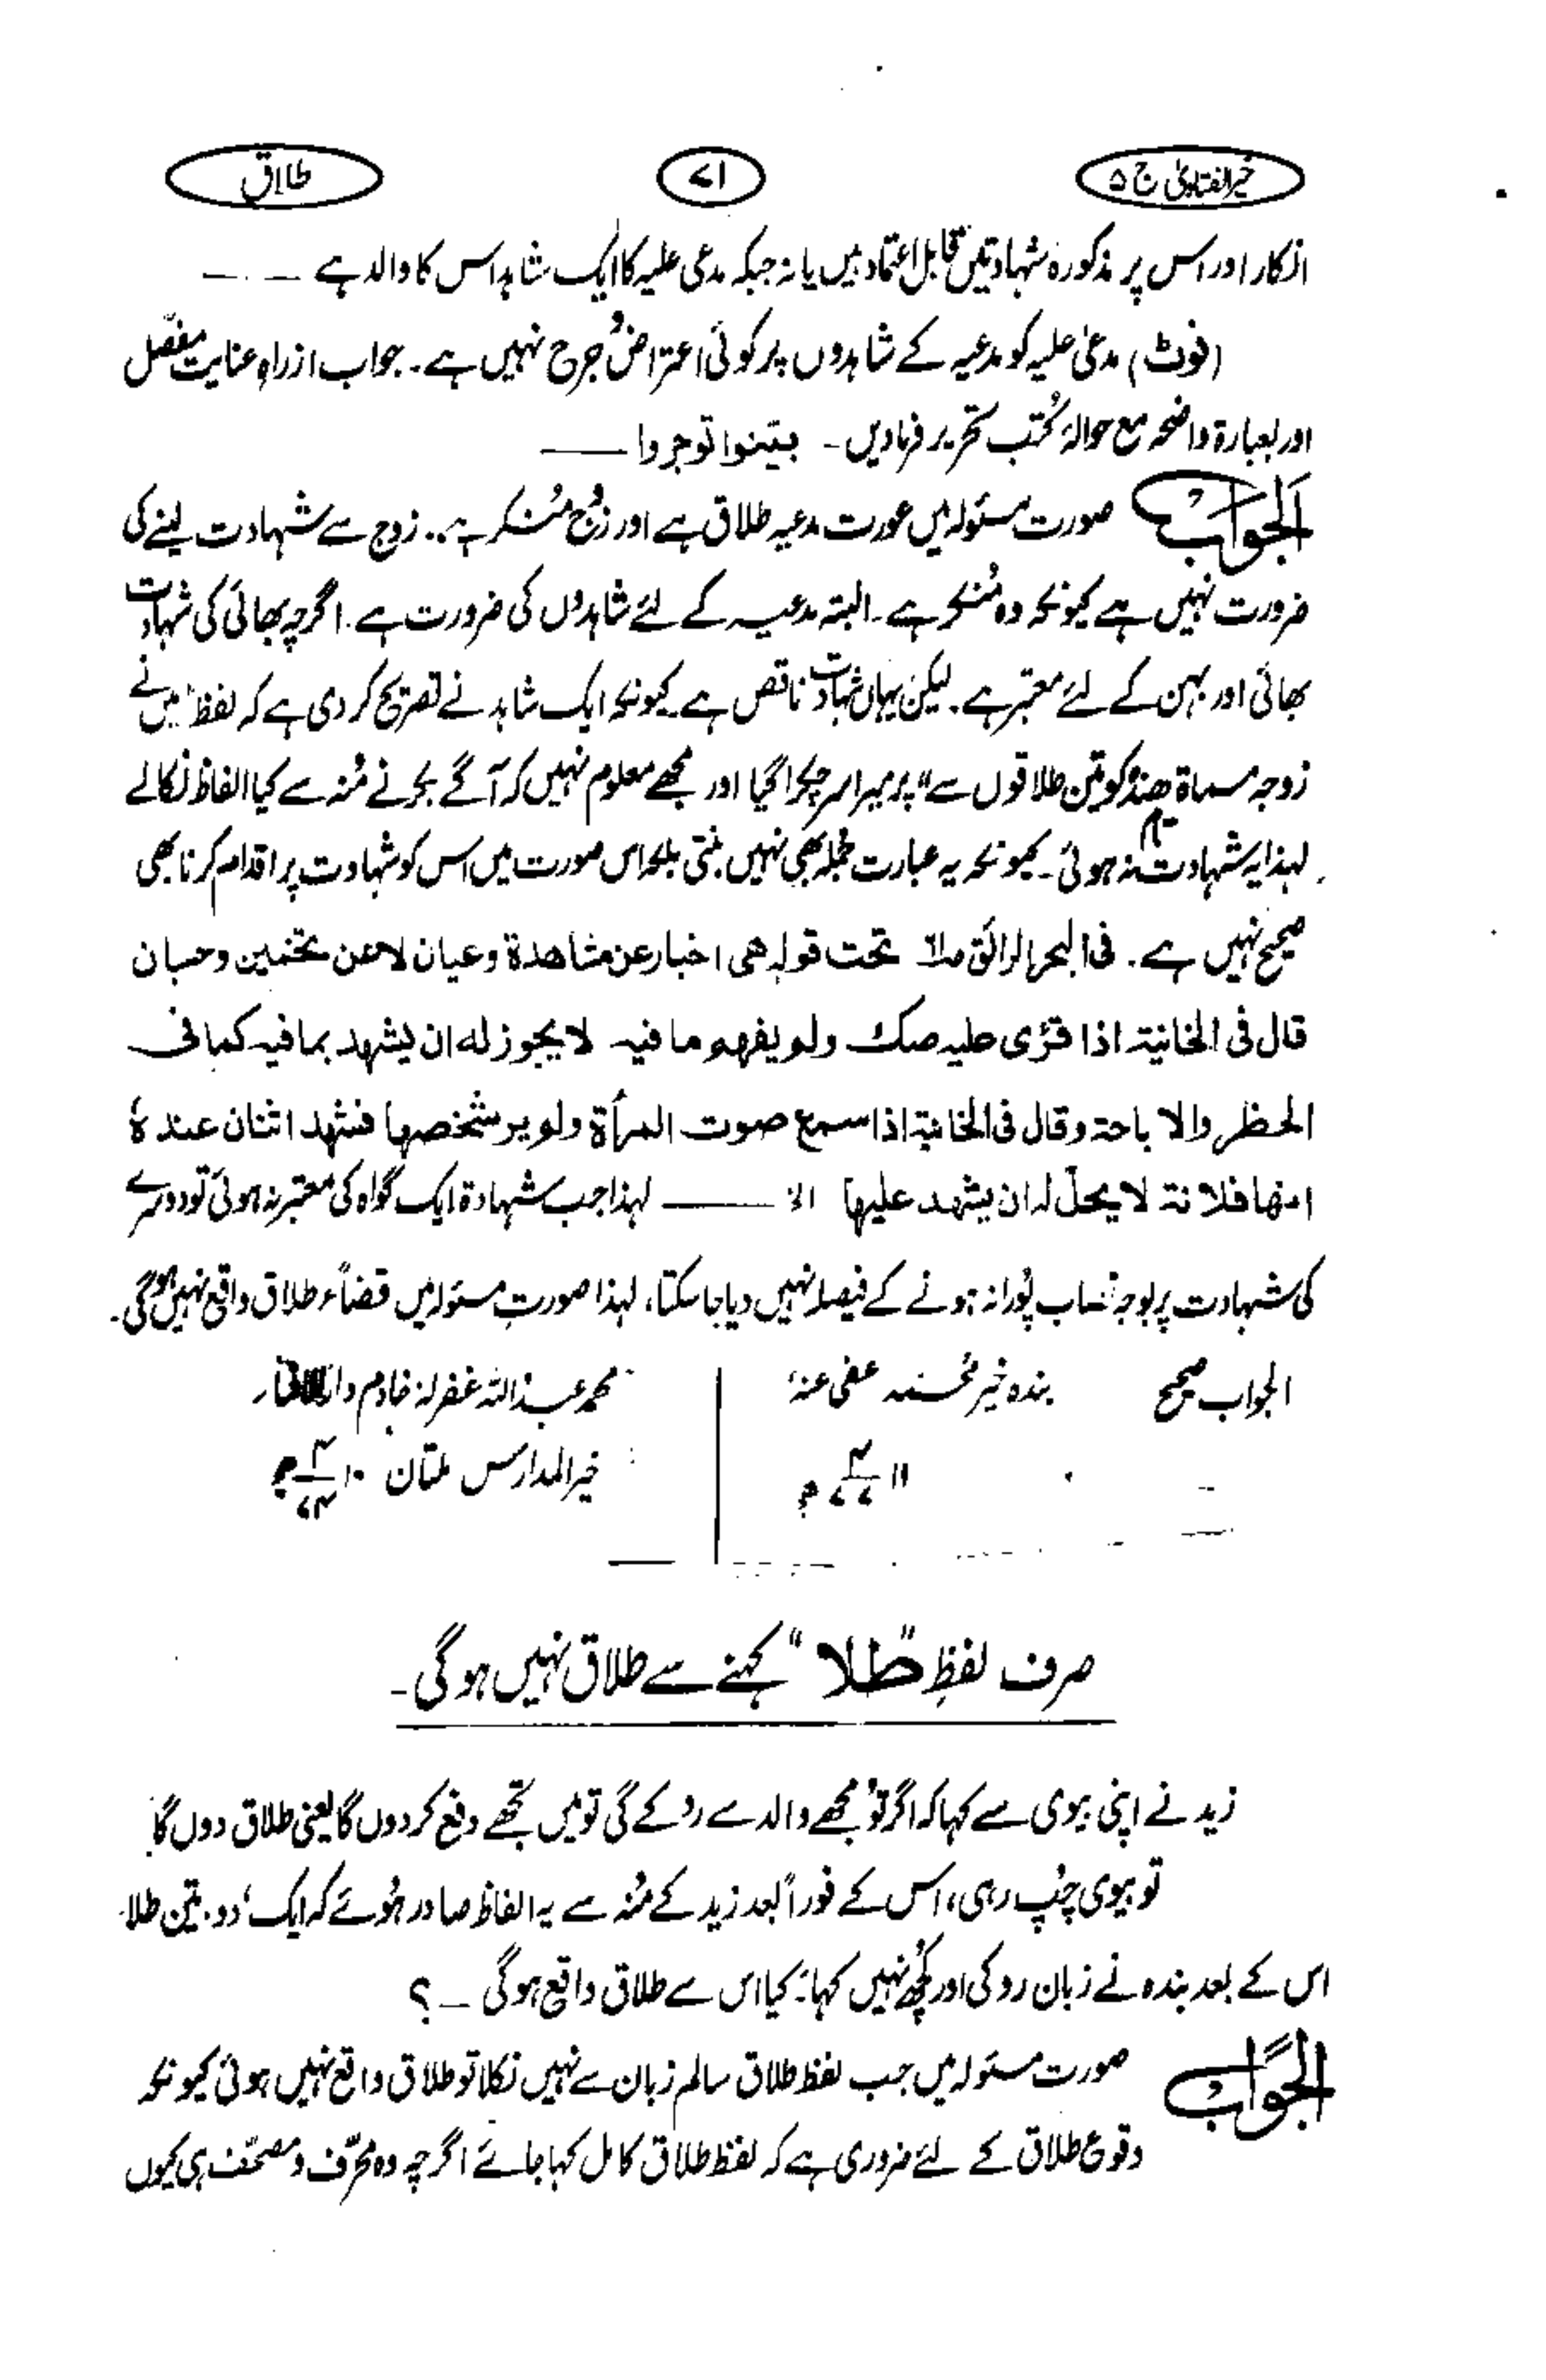 خیرالفتاویٰ ج ۵
۷۱
طلاق
انکار اور اس پر مذکورہ شہادتیں قابل اعتماد ہیں یا نہ جبکہ مدعی علیہ کا ایک شاہد اس کا والد ہے ـــ
(نوٹ) مدعیٰ علیہ کو مدعیہ کے شاہدوں پر کوئی اعتراض و جرح نہیں ہے۔ جواب از راہِ عنایت مفصّل
اور بعبارۃ واضحہ مع حوالۂ کُتب تحریر فرمادیں۔ بیّنوا توجروا ـــ
اَلجَوَابُ صورت مسئولہ میں عورت مدعیہ طلاق ہے اور زَوج مُنکر ہے۔ زوج سے شہادت لینے کی
ضرورت نہیں ہے کیونکہ وہ مُنکر ہے۔ البتہ مدعیہ کے لئے شاہدوں کی ضرورت ہے۔ اگرچہ بھائی کی شہادت
بھائی اور بہن کے لئے معتبر ہے۔ لیکن یہاں شہادت ناقص ہے کیونکہ ایک شاہد نے تصریح کر دی ہے کہ لفظ "میں نے
زوجہ مسماۃ ھندہ کو تین طلاقوں سے" پر میرا سر چکرا گیا اور مجھے معلوم نہیں کہ آگے بکر نے مُنہ سے کیا الفاظ نکالے
لہذا یہ شہادت تام نہ ہوئی۔ کیونکہ یہ عبارت جُملہ بھی نہیں بنتی بلکہ اس صورت میں اس کو شہادت پر اقدام کرنا بھی
صحیح نہیں ہے۔ فی البحر الرائق تحت قولہ ھی اخبار عن مشاھدۃ وعیان لا عن تخمین وحسبان
قال فی الخانیۃ اذا قرئ علیہ صک ولم یفھم ما فیہ لا یجوز لہ ان یشھد بما فیہ کما فی
الحظر والاباحۃ وقال فی الخانیۃ اذا سمع صوت المرأۃ ولم یر شخصھا فشھد اثنان عندہٗ
انھا فلانۃ لا یحلّ لہ ان یشھد علیھا الخ ـــ لہذا جب شہادۃ ایک گواہ کی معتبر نہ ہوئی تو دوسرے
کی شہادت پر بوجہ نصاب پُورا نہ ہونے کے فیصلہ نہیں دیا جا سکتا، لہذا صورتِ مسئولہ میں قضاءً طلاق واقع نہیں ہوگی۔
الجواب صحیح
بندہ خیر محمد عفی عنہٗ
محمد عبداللہ غفرلہٗ خادم دارالافتاء
خیرالمدارس ملتان
صرف لفظِ "طلا" کہنے سے طلاق نہیں ہو گی۔
زید نے اپنی بیوی سے کہا کہ اگر تُو مجھے والد سے روکے گی تو میں تجھے دفع کر دوں گا یعنی طلاق دوں گا
تو بیوی چُپ رہی، اس کے فوراً بعد زید کے مُنہ سے یہ الفاظ صادر ہُوئے کہ ایک، دو، تین طلا۔
اس کے بعد بندہ نے زبان روکی اور کچُھ نہیں کہا، کیا اس سے طلاق واقع ہو گی ـــ؟
الجَوَابُ صورت مسئولہ میں جب لفظ طلاق سالم زبان سے نہیں نکلا تو طلاق واقع نہیں ہوئی کیونکہ
وقوع طلاق کے لئے ضروری ہے کہ لفظ طلاق کامل کہا جائے اگرچہ وہ محرّف و مصحّف ہی کیوں